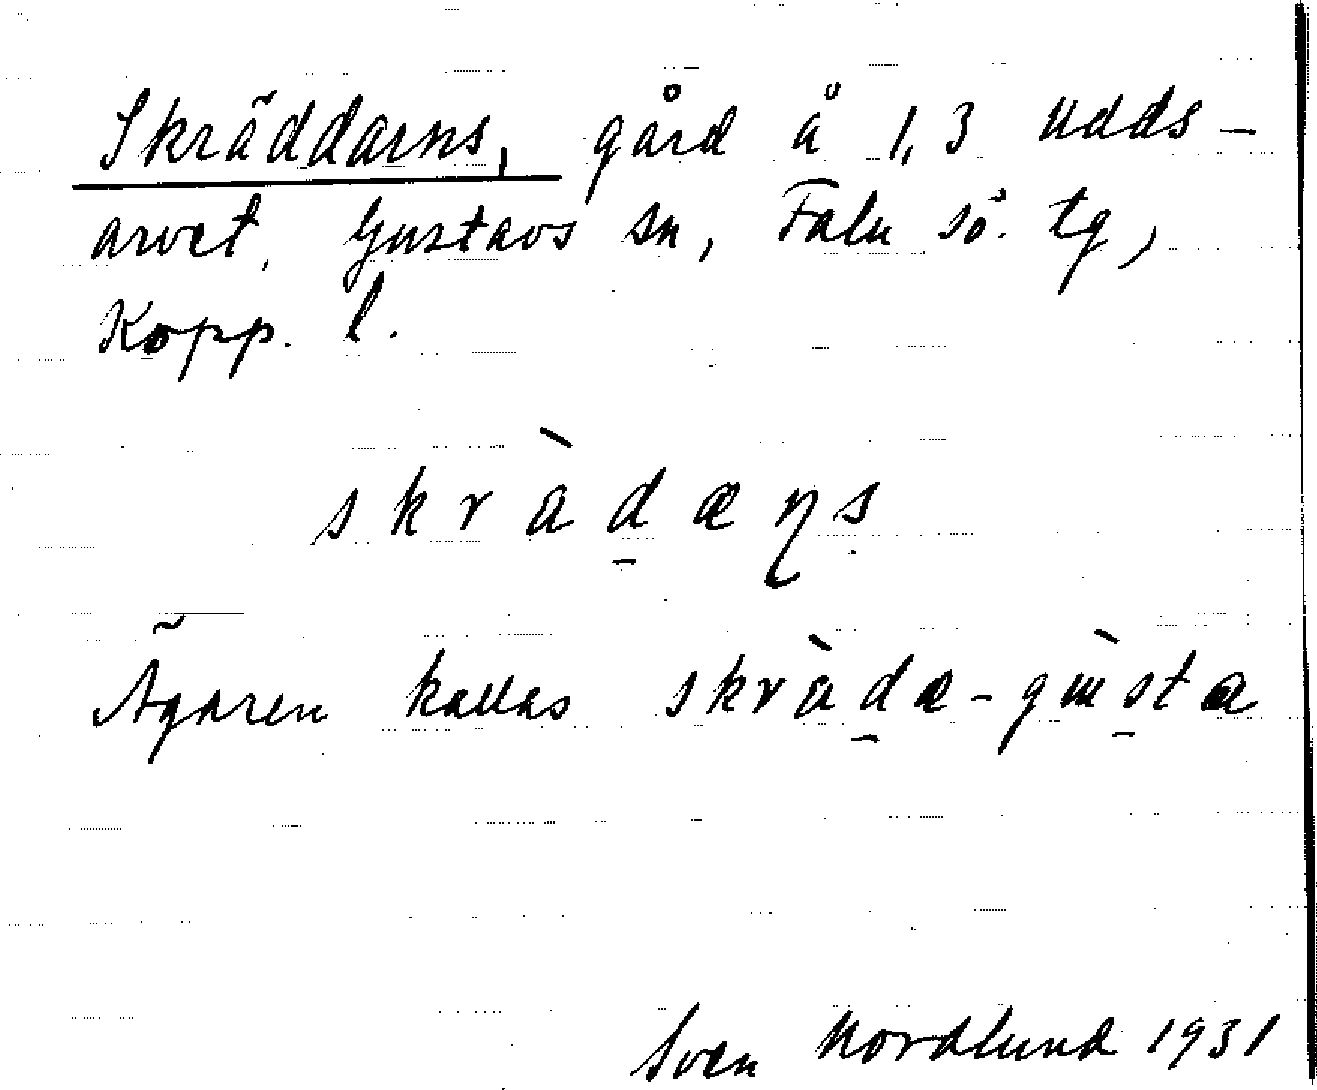 Skräddarns, gård å 1,3 Udds-
arvet, Gustavs sn, Falu sö. tg,
Kopp. l.
skràdæɳs
Ägaren kallas skràdæ-gùsta
Sven Nordlund 1931